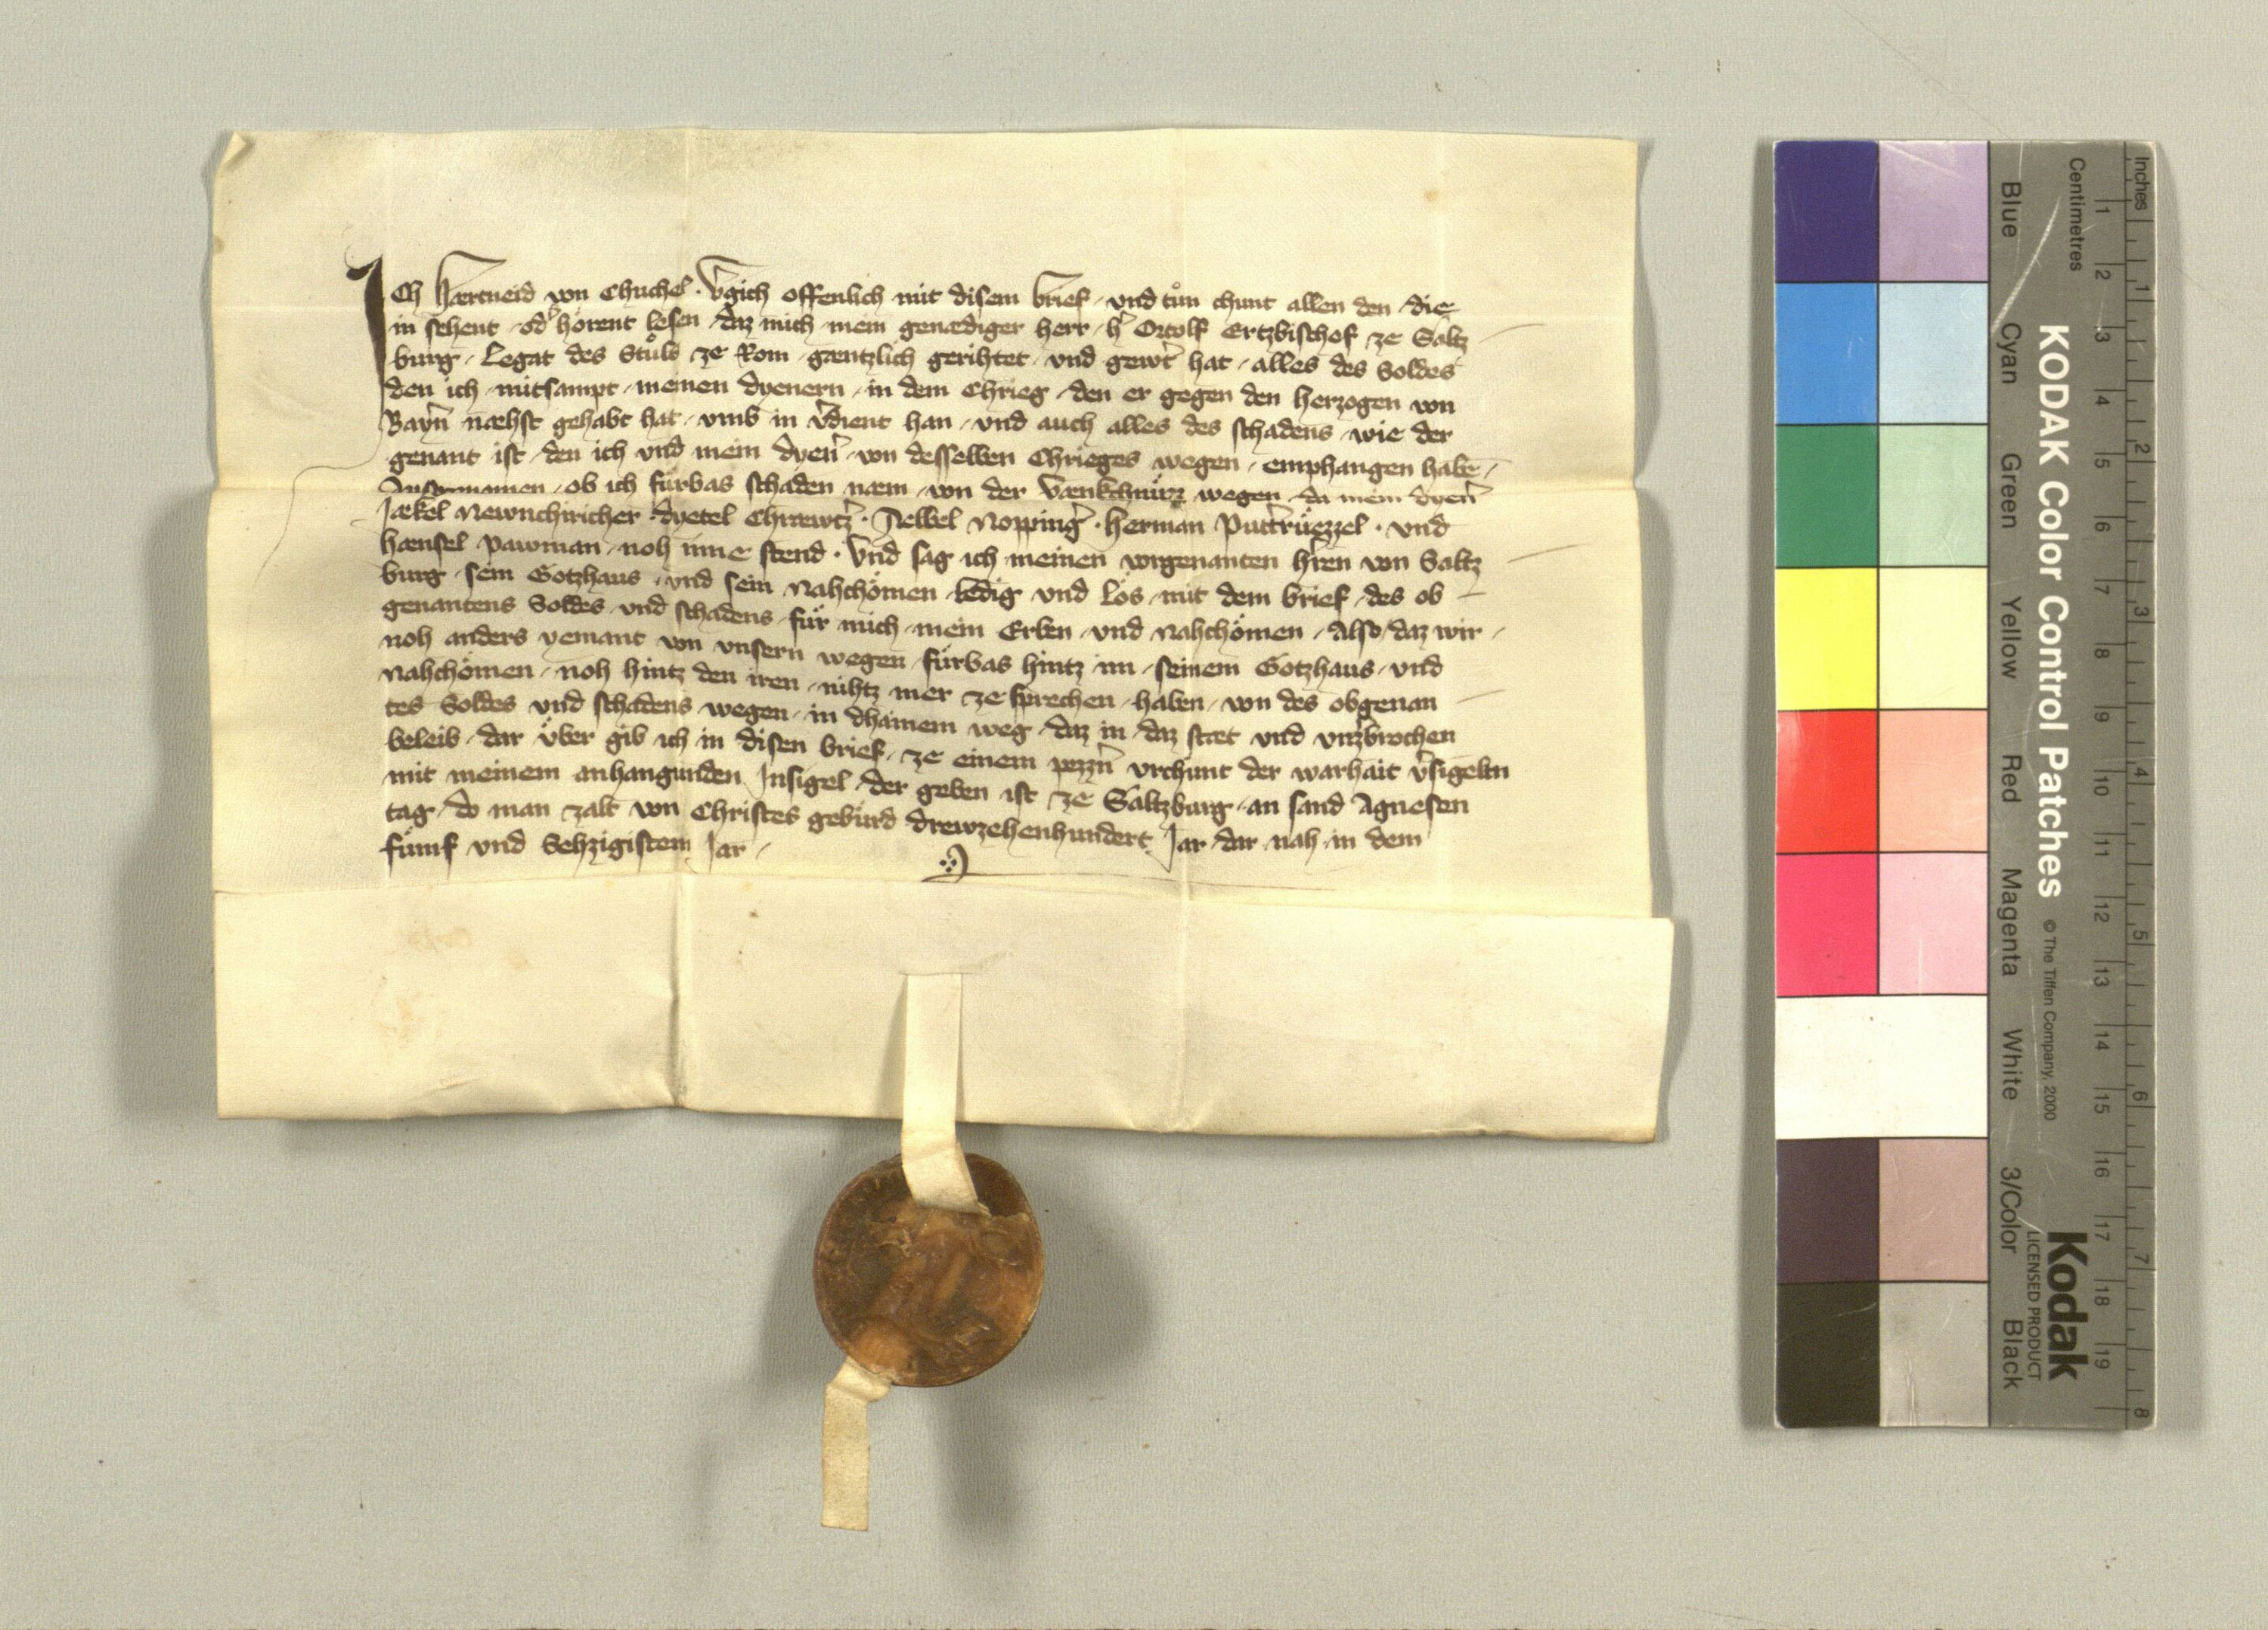 Ich Hærtneid von Chuchel · v̾gich offenlich mit disem brief · vnd tůn chunt allen den · die
in sehent · od̾ hörent lesen · daz mich mein genædiger herr · h̾ Ortolf Ertzbischof ze Saltz
burg · Legat des Stůls ze Rom · gæntzlich gerihtet · vnd gewt̾ hat · alles des Soldes
den ich · mitsampt · meinen dyenern · in dem Chrieg · den er gegen den herzogen von
Bayn̾ næhst gehabt hat · vmb in v̾dient han · vnd auch alles des schadens · wie der
genant ist · den ich vnd mein dyen̾ · von desselben Chrieges wegen · emphangen habē ·
Ausgenomen · ob ich fürbas schaden næm · von der Vænkchnüzz wegen · da mein dyen̾
Jækel Newnchiricher · dyetel Chræwtz̾ · Nelbel Nopping̾ · Herman Putt̾rüezzel · vnd
Hænsel Pawman · noh inne stend · Vnd sag ich meinen vorgenanten h̾ren von Saltz
burg · sein Gotzhaus · vnd sein Nahchömen · ledig vnd los · mit dem brief · des ob
genantens Soldes · vnd schadens · für mich · mein Erben · vnd Nahchömen · Also · daz wir ·
noh anders yemant von vnsern wegen · fürbas hintz im · seinem Gotzhaus · vnd
Nahchömen · noh hintz den iren · nihtz mer ze sprechen · haben · von des obgenan
tes Soldes vnd schadens · wegen · in dhainem weg · daz in · daz stæt vnd vnzbrochen
beleib · dar über gib ich in disen brief · ze einem pezzn̾ vrchunt der warhait v̾sigelten
mit meinem anhangunden Insigel · der geben ist ze Saltzburg · an sand Agnesen
tag · do man zalt von Christes gebürd drewzehenhundert Jar · dar nah · in dem
fümf vnd Sehzigistem Jar ·
KODAK Color Control Patches © The Tiffen Company, 2000
Kodak
LICENSED PRODUCT
Blue Cyan Green Yellow Red Magenta White 3/Color Black
Inches 1 2 3 4 5 6 7 8
Centimetres 1 2 3 4 5 6 7 8 9 10 11 12 13 14 15 16 17 18 19